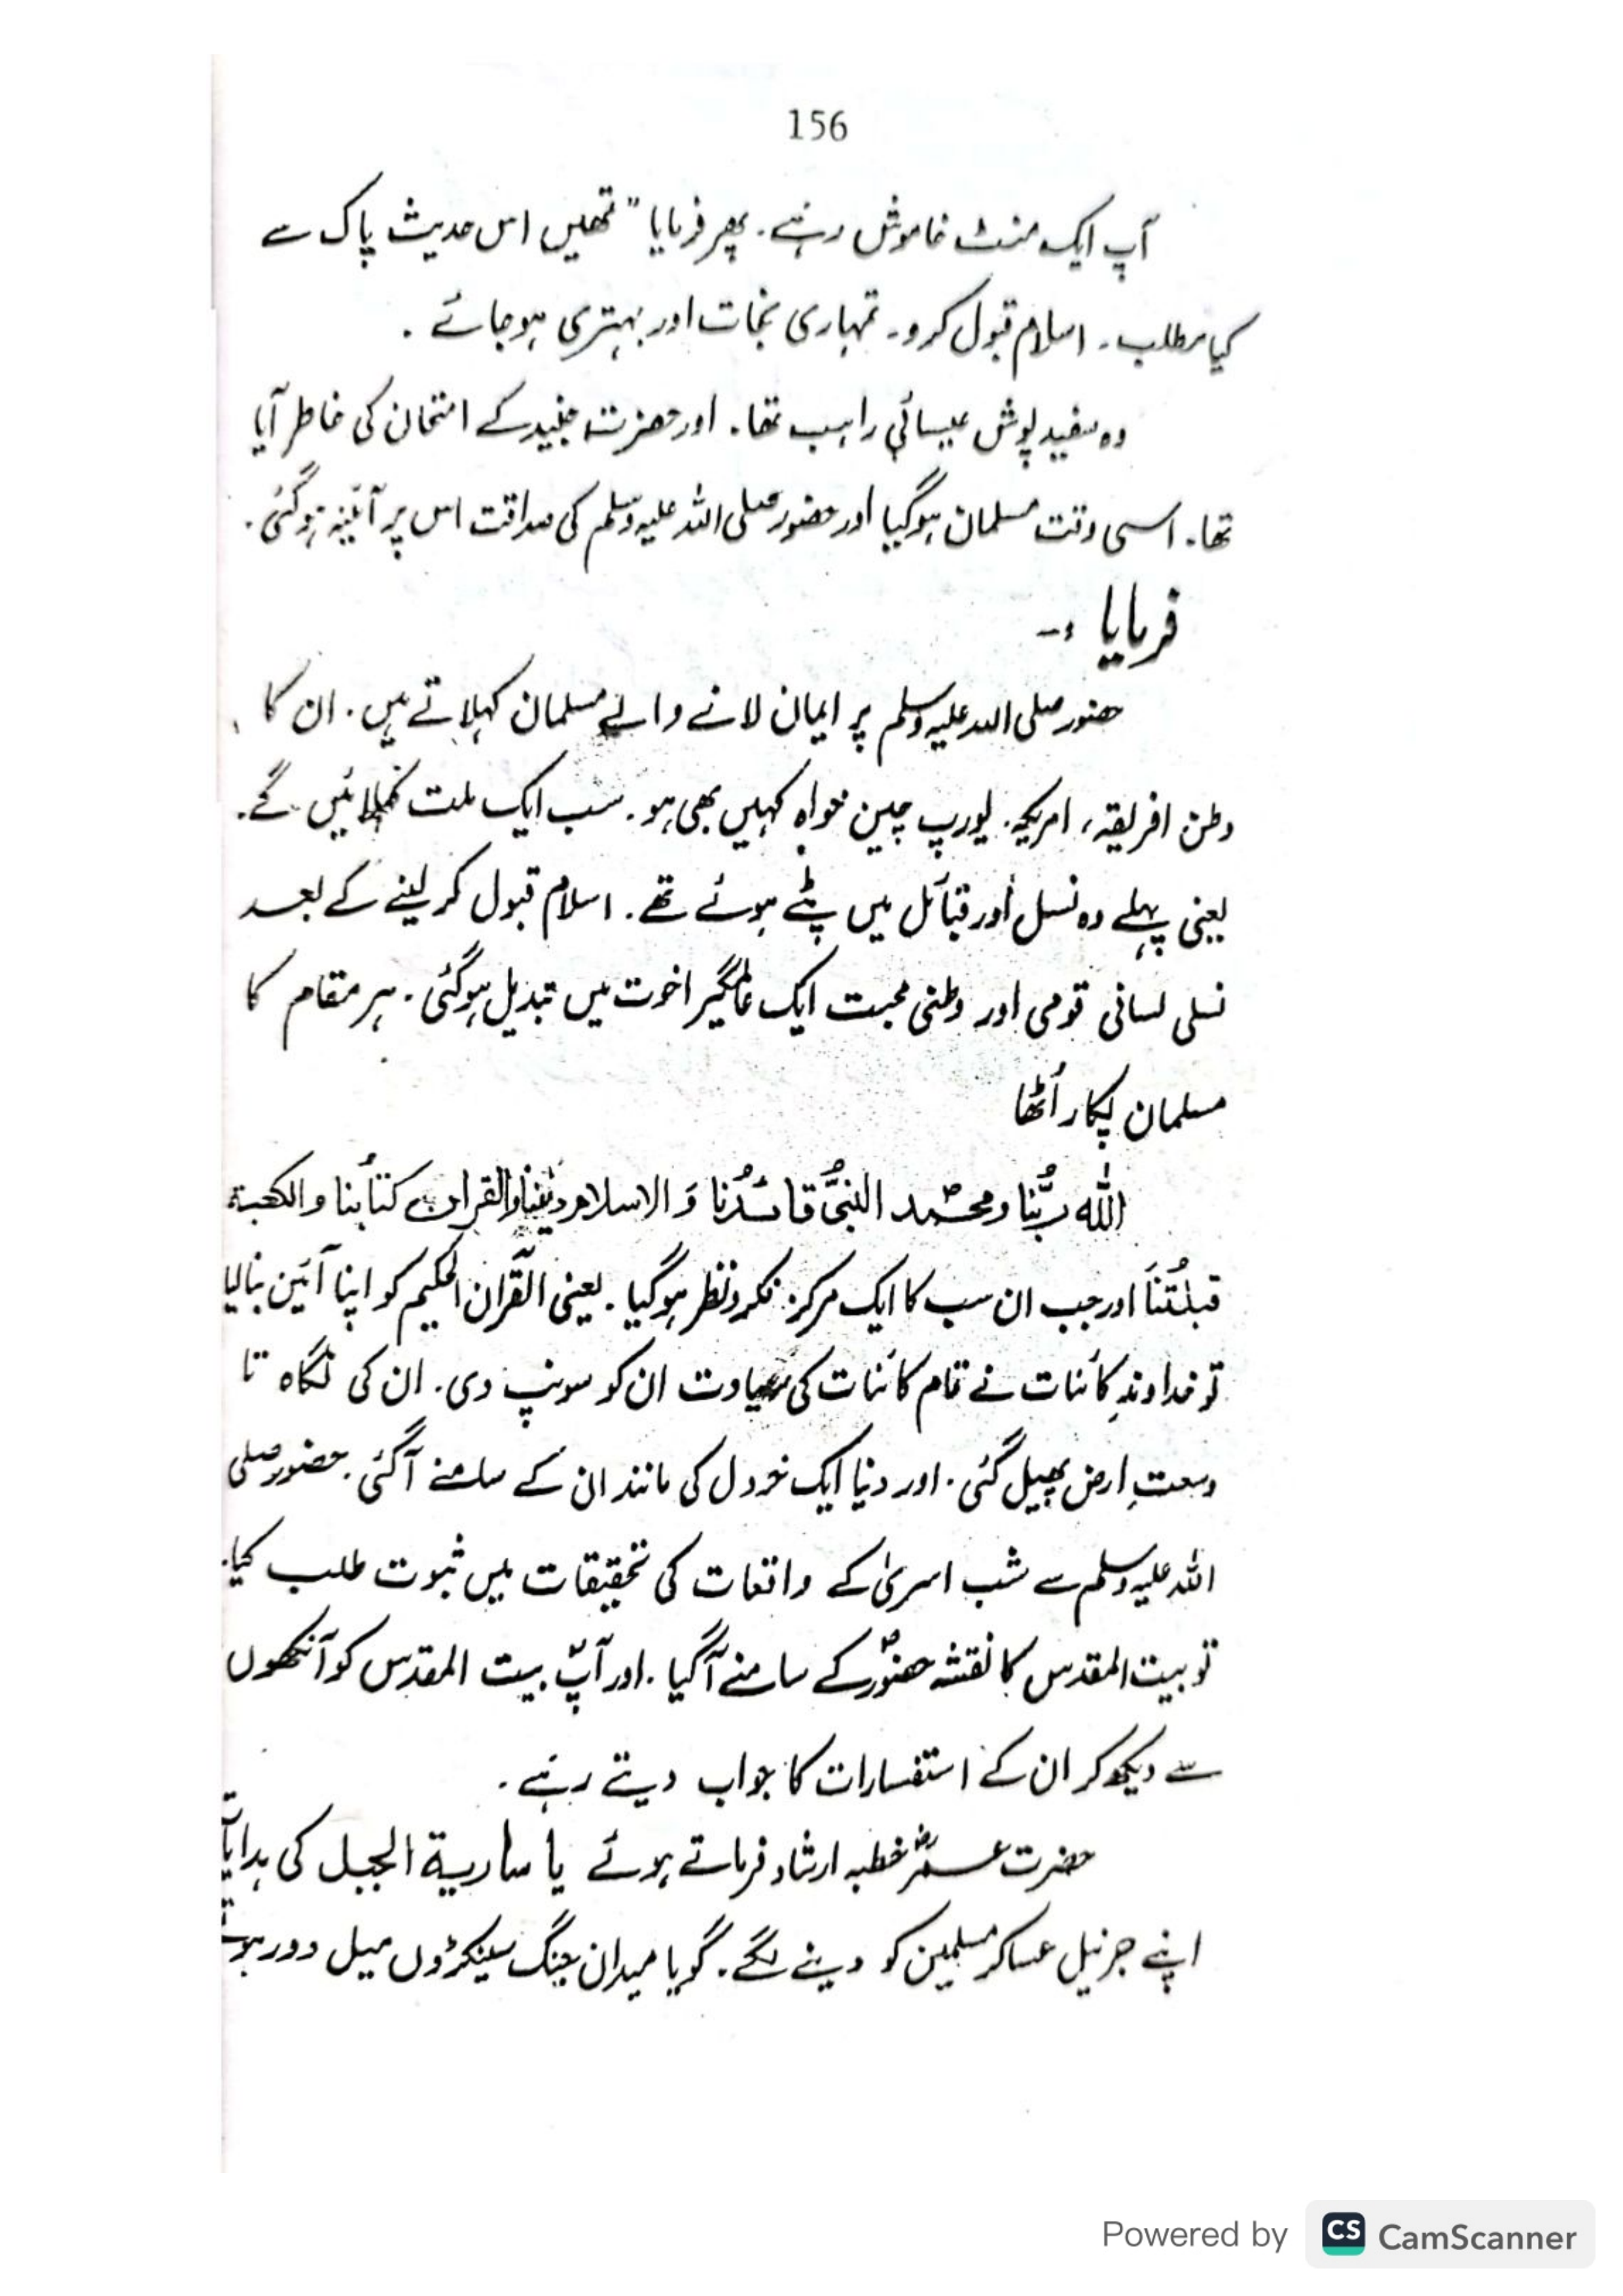 156
آپ ایک منٹ خاموش رہے۔ پھر فرمایا "تمھیں اس حدیث پاک سے
کیا مطلب۔ اسلام قبول کرو۔ تمہاری نجات اور بہتری ہو جائے۔
وہ سفید پوش عیسائی راہب تھا۔ اور حضرت جنید کے امتحان کی خاطر آیا
تھا۔ اسی وقت مسلمان ہوگیا اور حضور صلی اللہ علیہ وسلم کی صداقت اس پر آئینہ ہوگئی۔
فرمایا :-
حضور صلی اللہ علیہ وسلم پر ایمان لانے والے مسلمان کہلاتے ہیں۔ ان کا
وطن افریقہ، امریکہ۔ یورپ چین خواہ کہیں بھی ہو۔ سب ایک ملت کہلائیں گے۔
یعنی پہلے وہ نسل اور قبائل میں بٹے ہوئے تھے۔ اسلام قبول کر لینے کے بعد
نسلی لسانی قومی اور وطنی محبت ایک عالمگیر اخوت میں تبدیل ہوگئی۔ ہر مقام کا
مسلمان پکار اُٹھا
اللہ ربُّنا ومحمدؐ النبیُّ قائدُنا وَ الاسلام دیننا والقران کتابُنا و الکعبة
قبلتُنَا اور جب ان سب کا ایک مرکز فکر و نظر ہوگیا۔ یعنی القرآن الحکیم کو اپنا آئین بنا لیا
تو خداوندِ کائنات نے تمام کائنات کی سیادت ان کو سونپ دی۔ ان کی نگاہ تا
وسعتِ ارض پھیل گئی۔ اور دنیا ایک خردل کی مانند ان کے سامنے آگئی۔ حضور صلی
اللہ علیہ وسلم سے شب اسریٰ کے واقعات کی تحقیقات میں ثبوت طلب کیا۔
تو بیت المقدس کا نقشہ حضورؐ کے سامنے آگیا۔ اور آپؐ بیت المقدس کو آنکھوں
سے دیکھ کر ان کے استفسارات کا جواب دیتے رہے۔
حضرت عمرؓ خطبہ ارشاد فرماتے ہوئے یا ساریة الجبل کی ہدایات
اپنے جرنیل عساکر مسلمین کو دینے لگے۔ گویا میدان جنگ سینکڑوں میل دور ہوتے
Powered by CS CamScanner